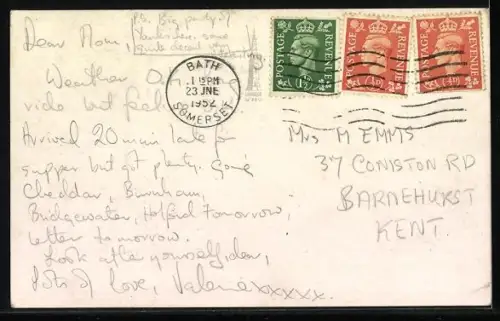 P.S. Big party of
Yorkshire some
quite decent
Dear Mum,
Weather O.
ride but feel
Arrived 20 min late for
supper but got plenty. Going
Cheddar, Burnham,
Bridgewater, Holford tomorrow,
letter tomorrow.
Look after yourself, dear,
lots of love, Valerie xxxxxx.
BATH
1 15 PM
23 JNE
1952
SOMERSET
POSTAGE
REVENUE
POSTAGE
REVENUE
POSTAGE
REVENUE
Mrs M EMMS
37 CONISTON RD
BARNEHURST
KENT.